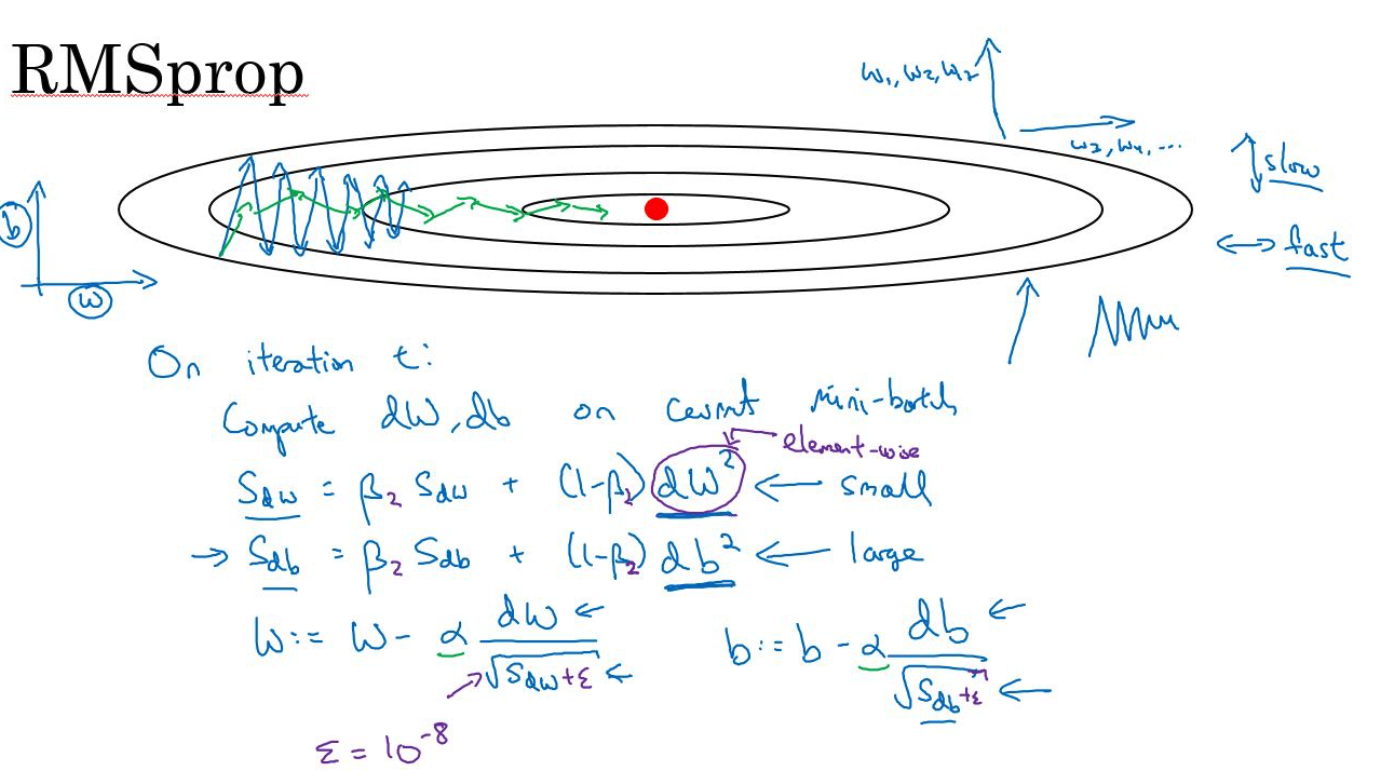 RMSprop
w₁, w₂, w₇
w₃, w₄, ...
slow
fast
b
w
On iteration t:
Compute dW, db on current mini-batch
element-wise
S_dw = β₂ S_dw + (1-β₂) dW² ← small
→ S_db = β₂ S_db + (1-β₂) db² ← large
W := W - α dW / √(S_dw + ε) ← b := b - α db / √(S_db + ε) ←
ε = 10⁻⁸